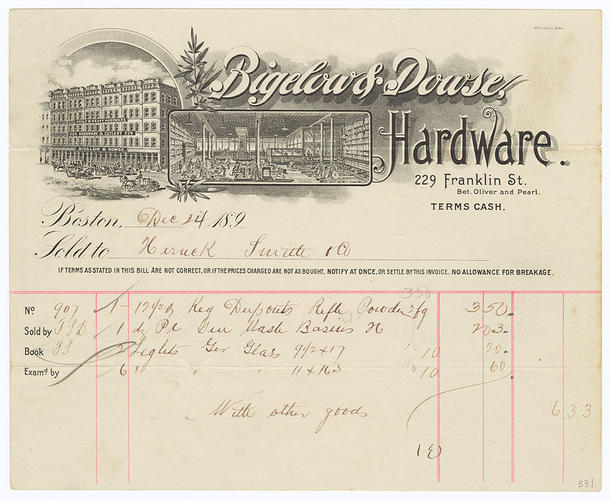 Bigelow & Dowse,
Hardware.
229 Franklin St.
Bet. Oliver and Pearl.
TERMS CASH.
Boston, Dec 24 189
Sold to Smith & Co
IF TERMS AS STATED IN THIS BILL ARE NOT CORRECT, OR IF THE PRICES CHARGED ARE NOT AS BOUGHT, NOTIFY AT ONCE, OR SETTLE BY THIS INVOICE. NO ALLOWANCE FOR BREAKAGE.
350
No 907 1 12½# Keg Duponts Rifle Powder 2fg 350.
Sold by 1 Wash Basins 203.
Book 2 Lights Ger Glass 9½x17 10 20.
Exam'd by 6 " " 11x16 10 60
With other goods 633
331